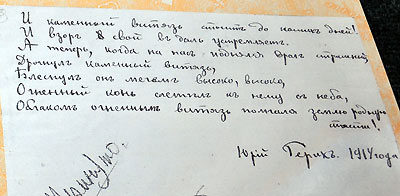 И каменный витязь стоитъ до нашихъ дней!
И взоръ свой въ даль устремляетъ.
А теперь, когда на насъ поднялся врагъ страшный
Дрогнулъ каменный витязь,
Блеснулъ онъ мечемъ высоко, высоко,
Огненный конь слетѣлъ къ нему съ неба,
Облакомъ огненнымъ витязь помчалъ землю родную
спасти!
Юрій Рерихъ. 1914 года